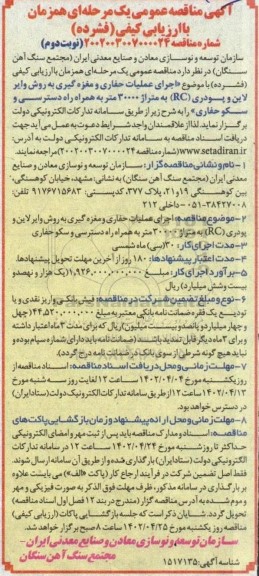 آگهی مناقصه عمومی یک مرحله‌ای همزمان
با ارزیابی کیفی (فشرده)
شماره مناقصه ۲۰۰۲۰۰۳۰۰۷۰۰۰۰۲۴ (نوبت دوم)
سازمان توسعه و نوسازی معادن و صنایع معدنی ایران (مجتمع سنگ آهن
سنگان) در نظر دارد مناقصه عمومی یک مرحله‌ای همزمان با ارزیابی کیفی
(فشرده) با موضوع «اجرای عملیات حفاری و مغزه گیری به روش وایر
لاین و پودری (RC) به متراژ ۳۰۰۰۰ متر به همراه راه دسترسی و
سکو حفاری» را به شرح زیر از طریق سامانه تدارکات الکترونیکی دولت
برگزار نماید. لذا از علاقمندان واجد شرایط دعوت به عمل می آید جهت
دریافت اسناد مناقصه به سامانه تدارکات الکترونیکی دولت به آدرس:
www.setadiran.ir (شماره مناقصه ۲۰۰۲۰۰۳۰۰۷۰۰۰۰۲۴) مراجعه نمایند.
۱- نام و نشانی مناقصه گزار: سازمان توسعه و نوسازی معادن و صنایع
معدنی ایران (مجتمع سنگ آهن سنگان) به نشانی: مشهد، خیابان کوهسنگی،
بین کوهسنگی ۱۹ و ۲۱، پلاک ۳۷۷، کدپستی: ۹۱۷۶۷۱۵۶۸۳ تلفن:
۳۸۴۲۷۰۰۸-۰۵۱ داخلی ۲۱۲
۲- موضوع مناقصه: اجرای عملیات حفاری و مغزه گیری به روش وایر لاین و
پودری (RC) به متراژ ۳۰۰۰۰ متر به همراه راه دسترسی و سکو حفاری
۳- مدت اجرای کار: ۳۰ (سی) ماه شمسی
۴- مدت اعتبار پیشنهادها: ۱۸۰ روز از آخرین مهلت تحویل پیشنهادها.
۵- برآورد اجرای کار: مبلغ ۱,۹۲۶,۰۰۰,۰۰۰,۰۰۰ (یک هزار و نهصد و
بیست و شش میلیارد) ریال
۶- نوع و مبلغ تضمین شرکت در مناقصه: فیش بانکی واریز نقدی و یا
تودیع یک فقره ضمانت نامه بانکی معتبر به مبلغ ۴۴,۵۲۰,۰۰۰,۰۰۰ (چهل
و چهار میلیارد و پانصد و بیست میلیون) ریال که برای مدت ۳ ماه اعتبار داشته
و برای ۳ ماه دیگر قابل تمدید باشند (ضمانت نامه باید دارای شماره سپام بوده و
نباید هیچ گونه شرطی از سوی بانک در ضمانت نامه درج گردد).
۷- مهلت زمانی و محل دریافت اسناد مناقصه: اسناد مناقصه از
روز یکشنبه مورخ ۱۴۰۲/۰۴/۰۴ ساعت ۱۲ لغایت روز سه شنبه مورخ
۱۴۰۲/۰۴/۱۳ ساعت ۱۲ از طریق سامانه تدارکات الکترونیک دولت (ستاد ایران)
در دسترس خواهد بود.
۸- مهلت زمانی و محل ارائه پیشنهاد و زمان بازگشایی پاکت‌های
مناقصه: اسناد و مدارک مناقصه باید پس از ثبت مهر و امضای الکترونیکی
حداکثر تا روز شنبه مورخ ۱۴۰۲/۰۴/۲۴ ساعت ۱۲ در سامانه تدارکات
الکترونیکی دولت (ستاد ایران) بارگذاری شده و از طریق آن سامانه ارسال شوند.
فقط اصل تضمین شرکت در فرآیند ارجاع کار (پاکت «الف») می بایست علاوه
بر بارگذاری در سامانه مذکور، ظرف مهلت فوق الذکر به صورت فیزیکی و مهر
و موم شده به آدرس مناقصه گزار (مندرج در بند ۱۲ فصل اول اسناد مناقصه)
تحویل گردد. شایان ذکر است که جلسه بازگشایی پاکات (ارزیابی کیفی)
مناقصه روز یکشنبه مورخ ۱۴۰۲/۰۴/۲۵ ساعت ۸ صبح برگزار خواهد شد.
سازمان توسعه و نوسازی معادن و صنایع معدنی ایران-
مجتمع سنگ آهن سنگان
شناسه آگهی: ۱۵۱۷۱۳۵